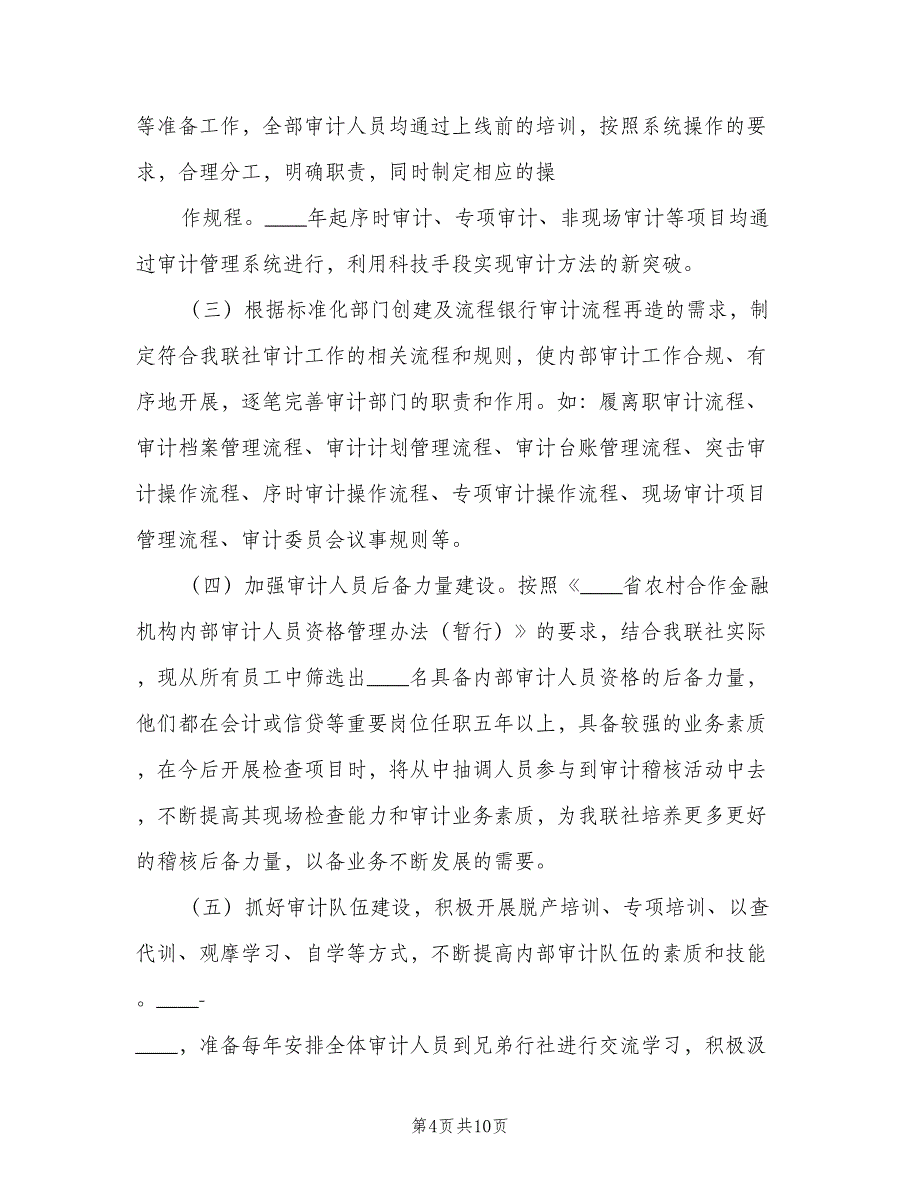 等准备工作，全部审计人员均通过上线前的培训，按照系统操作的要
求，合理分工，明确职责，同时制定相应的操
作规程。____年起序时审计、专项审计、非现场审计等项目均通
过审计管理系统进行，利用科技手段实现审计方法的新突破。
（三）根据标准化部门创建及流程银行审计流程再造的需求，制
定符合我联社审计工作的相关流程和规则，使内部审计工作合规、有
序地开展，逐笔完善审计部门的职责和作用。如：履离职审计流程、
审计档案管理流程、审计计划管理流程、审计台账管理流程、突击审
计操作流程、序时审计操作流程、专项审计操作流程、现场审计项目
管理流程、审计委员会议事规则等。
（四）加强审计人员后备力量建设。按照《____省农村合作金融
机构内部审计人员资格管理办法（暂行）》的要求，结合我联社实际
，现从所有员工中筛选出____名具备内部审计人员资格的后备力量，
他们都在会计或信贷等重要岗位任职五年以上，具备较强的业务素质
，在今后开展检查项目时，将从中抽调人员参与到审计稽核活动中去
，不断提高其现场检查能力和审计业务素质，为我联社培养更多更好
的稽核后备力量，以备业务不断发展的需要。
（五）抓好审计队伍建设，积极开展脱产培训、专项培训、以查
代训、观摩学习、自学等方式，不断提高内部审计队伍的素质和技能
。____-
____，准备每年安排全体审计人员到兄弟行社进行交流学习，积极汲
第4页共10页